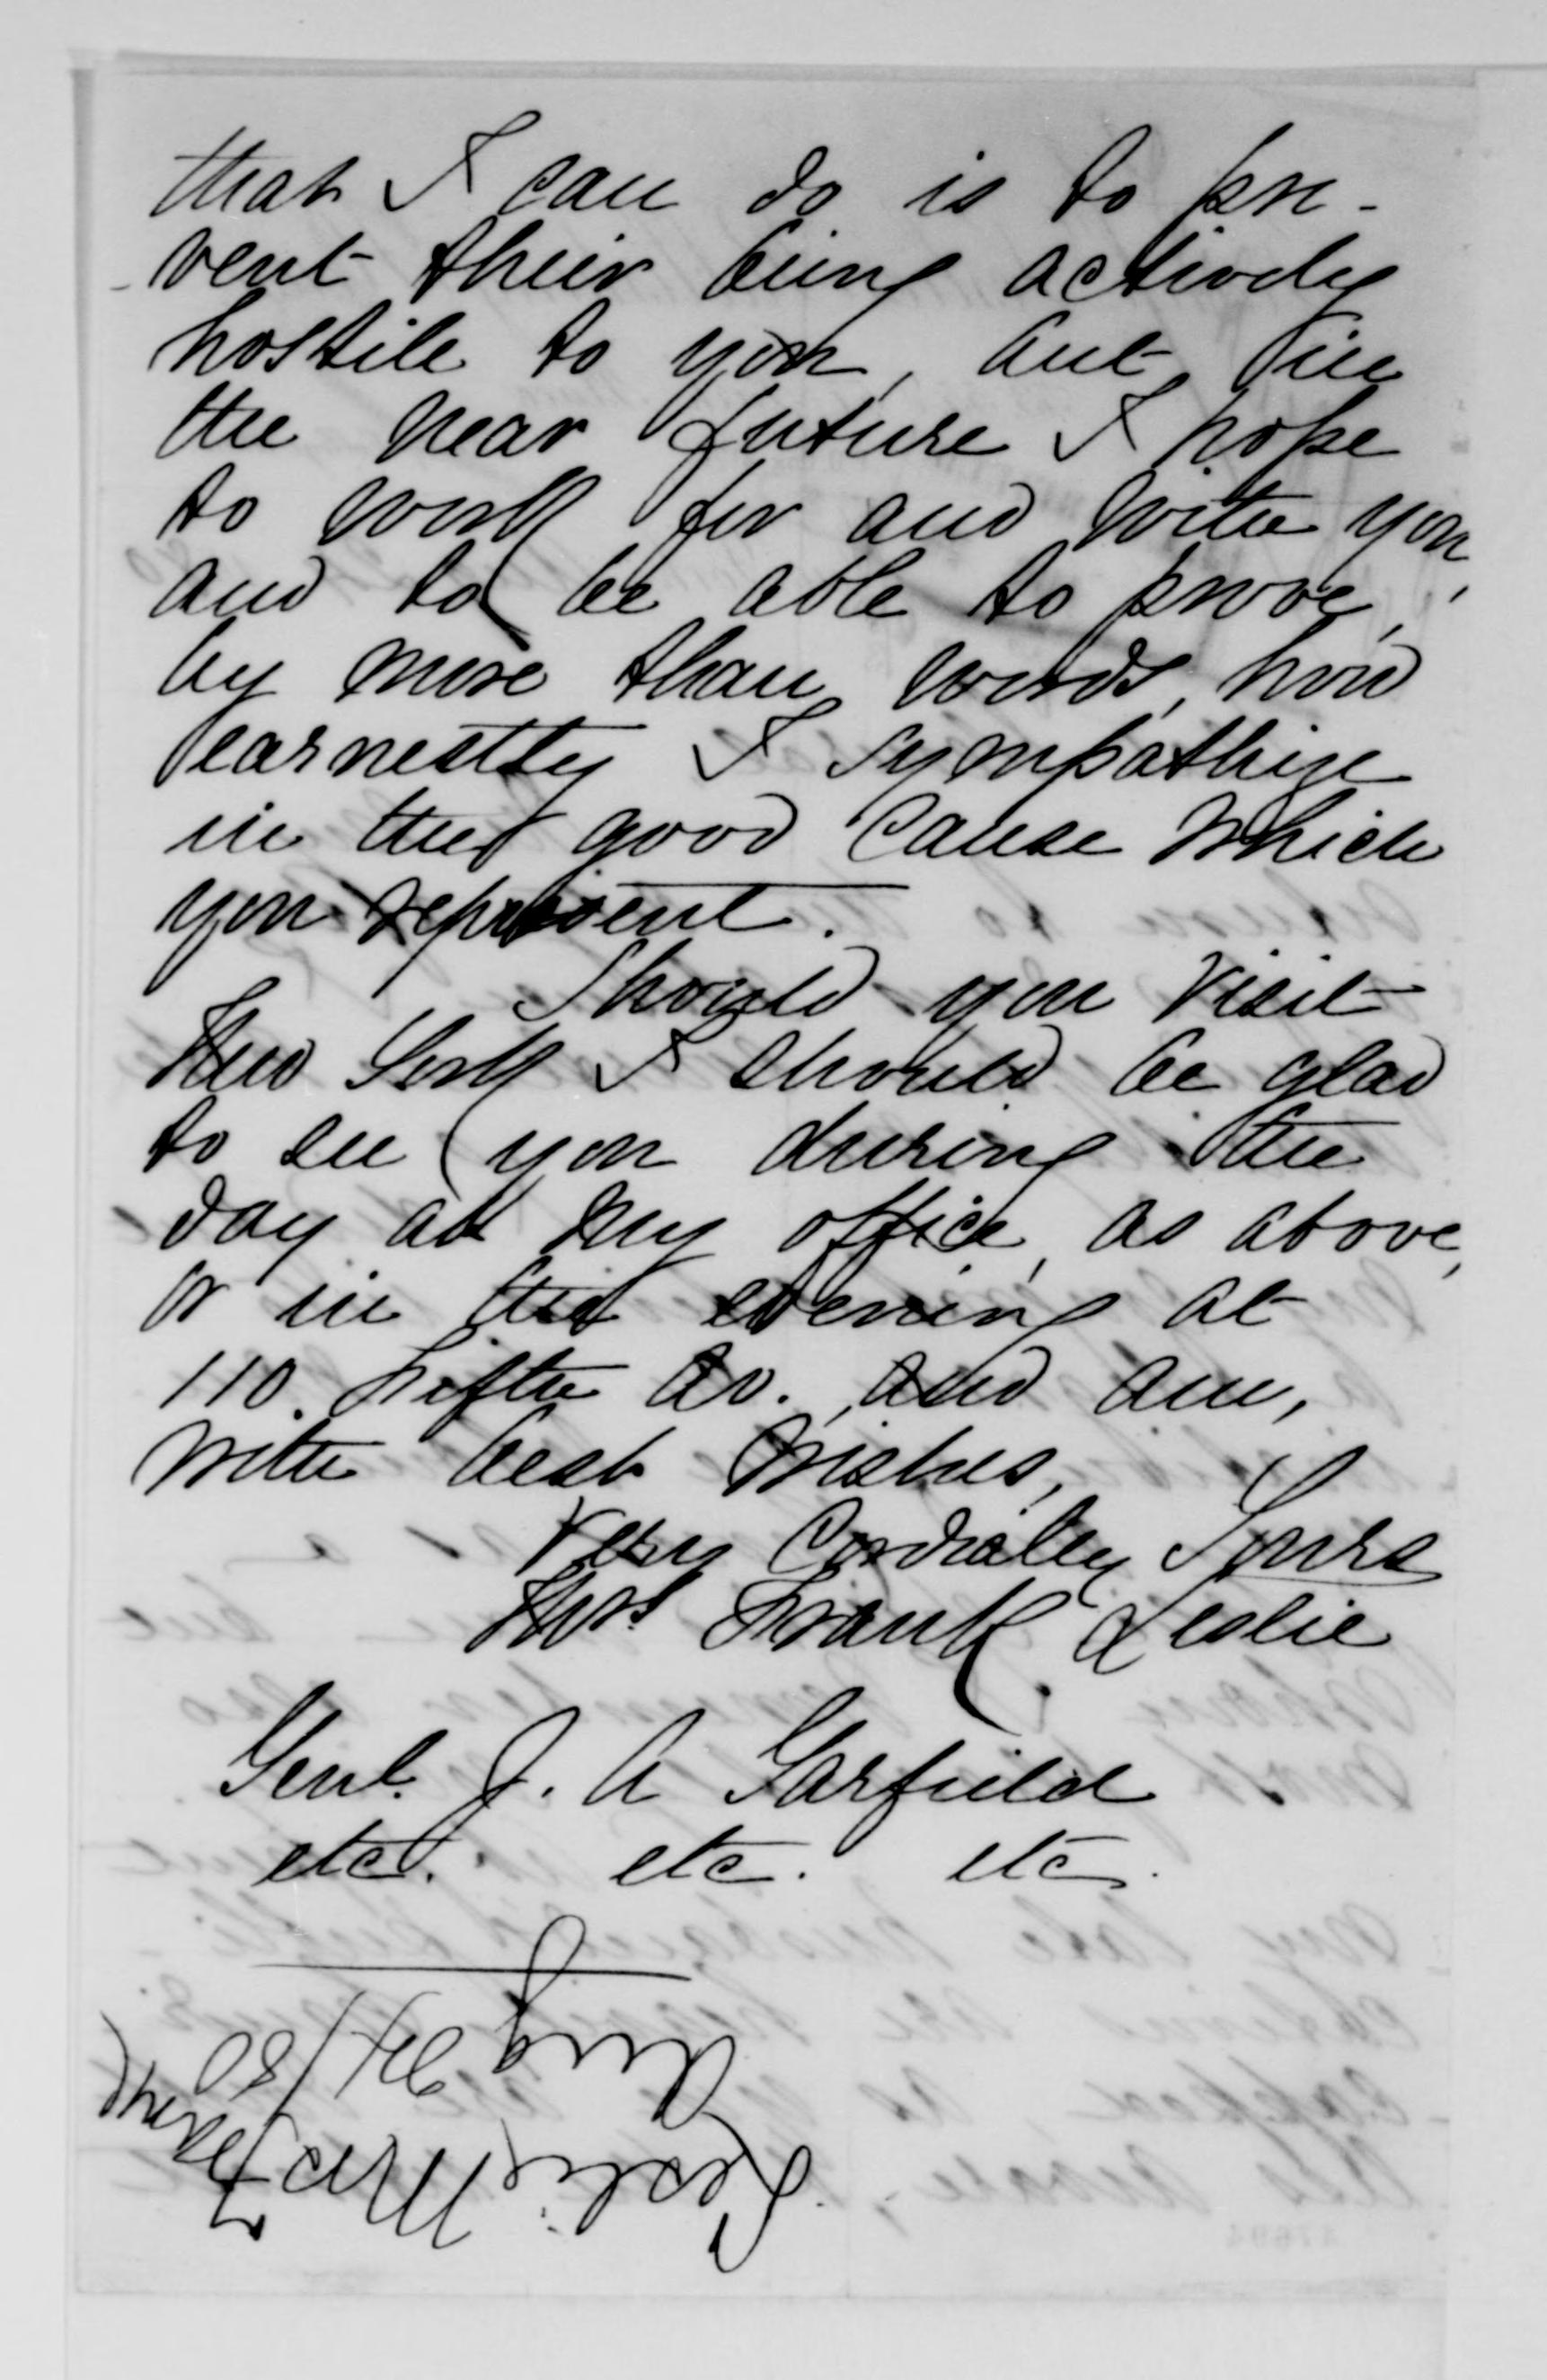 that I can do is to pre-
vent their being actively
hostile to you, but in
the near future I hope
to work for and with you,
and to be able to prove,
by more than words, how
earnestly I sympathize
in the good cause which
you represent.
Should you visit
New York I should be glad
to see you during the
day at my office, as above,
or in the evening at
110. Fifth Av., and am,
with best wishes,
Very Cordially Yours
Mrs Frank Leslie
Genl. J. A Garfield
etc. etc. etc.
Leslie, Mrs Frank
Aug /80